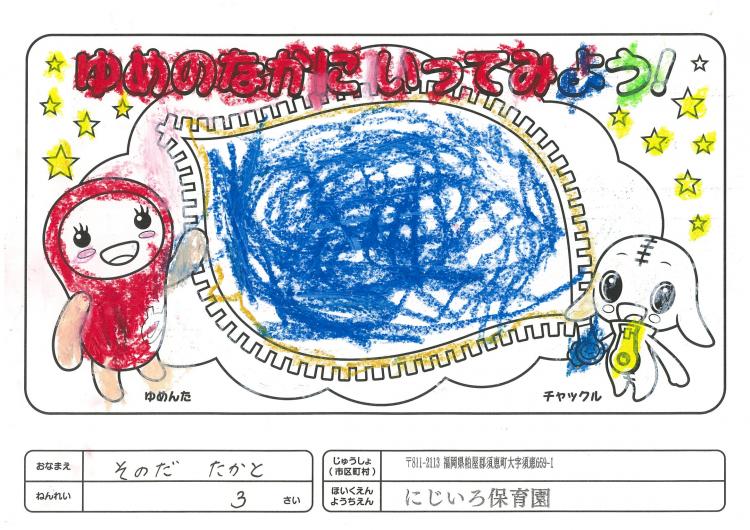 ゆめのなかにいってみよう!
ゆめんた
チャックル
おなまえ そのだ たかと
ねんれい 3 さい
じゅうしょ
(市区町村)
〒811-2113 福岡県粕屋郡須恵町大字須恵669-1
ほいくえん
ようちえん
にじいろ保育園